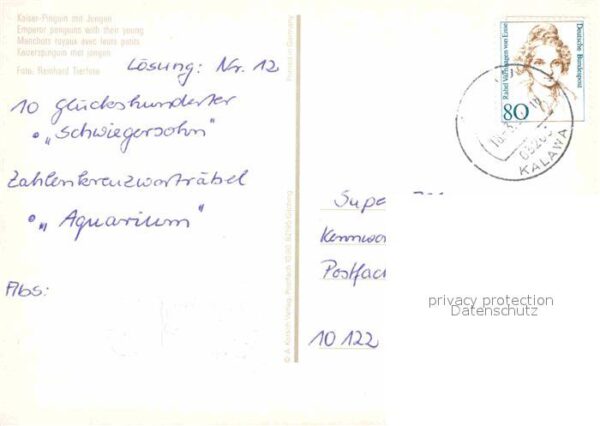 Kaiser-Pinguin mit Jungen
Emperor penguins with their young
Manchots royaux avec leurs petits
Keizerspinguin met jongen
Foto: Reinhard Tierfoto
Lösung: Nr. 12
10 Glückshunderter
• "Schwiegersohn"
Zahlenkreuzworträtsel
• "Aquarium"
Abs:
Printed in Germany
© A. Korsch Verlag, Postfach
Deutsche Bundespost
Rahel Varnhagen von Ense
80
KALAWA
Supe
Kennwo
Postfac
10 122
privacy protection
Datenschutz